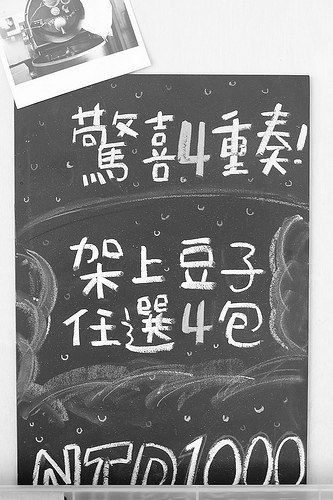 驚喜4重奏!
架上豆子
任選4包
NTD1000